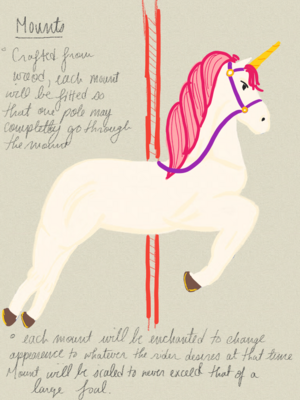 Mounts
° Crafted from
wood, each mount
will be fitted so
that one pole may
completly go through
the mount
° each mount will be enchanted to change
apperence to whatever the rider desires at that time
Mount will be scaled to never exceed that of a
large foal.